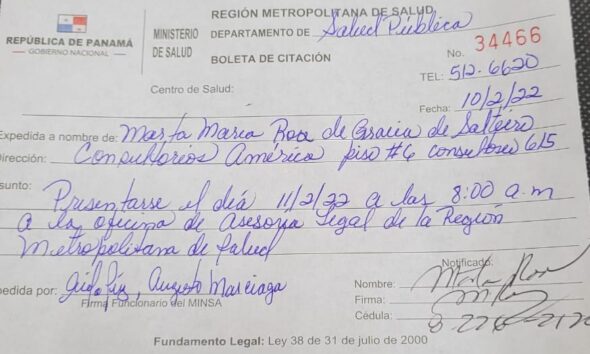 REPÚBLICA DE PANAMÁ
GOBIERNO NACIONAL
MINISTERIO
DE SALUD
REGIÓN METROPOLITANA DE SALUD
DEPARTAMENTO DE Salud Pública
BOLETA DE CITACIÓN
No. 34466
TEL: 512-6620
Centro de Salud:
Fecha: 10/2/22
Expedida a nombre de: Marta Maria Roa de Gracia de Salteiro
Dirección: Consultorios América piso #6 consultorio 615
sunto: Presentarse el día 11/2/22 a las 8:00 a.m
a la oficina de Asesoria Legal de la Región
Metropolitana de Salud
pedida por: Augusto Marciaga
Firma Funcionario del MINSA
Notificado:
Nombre: Marta Roa
Firma:
Cédula:
Fundamento Legal: Ley 38 de 31 de julio de 2000